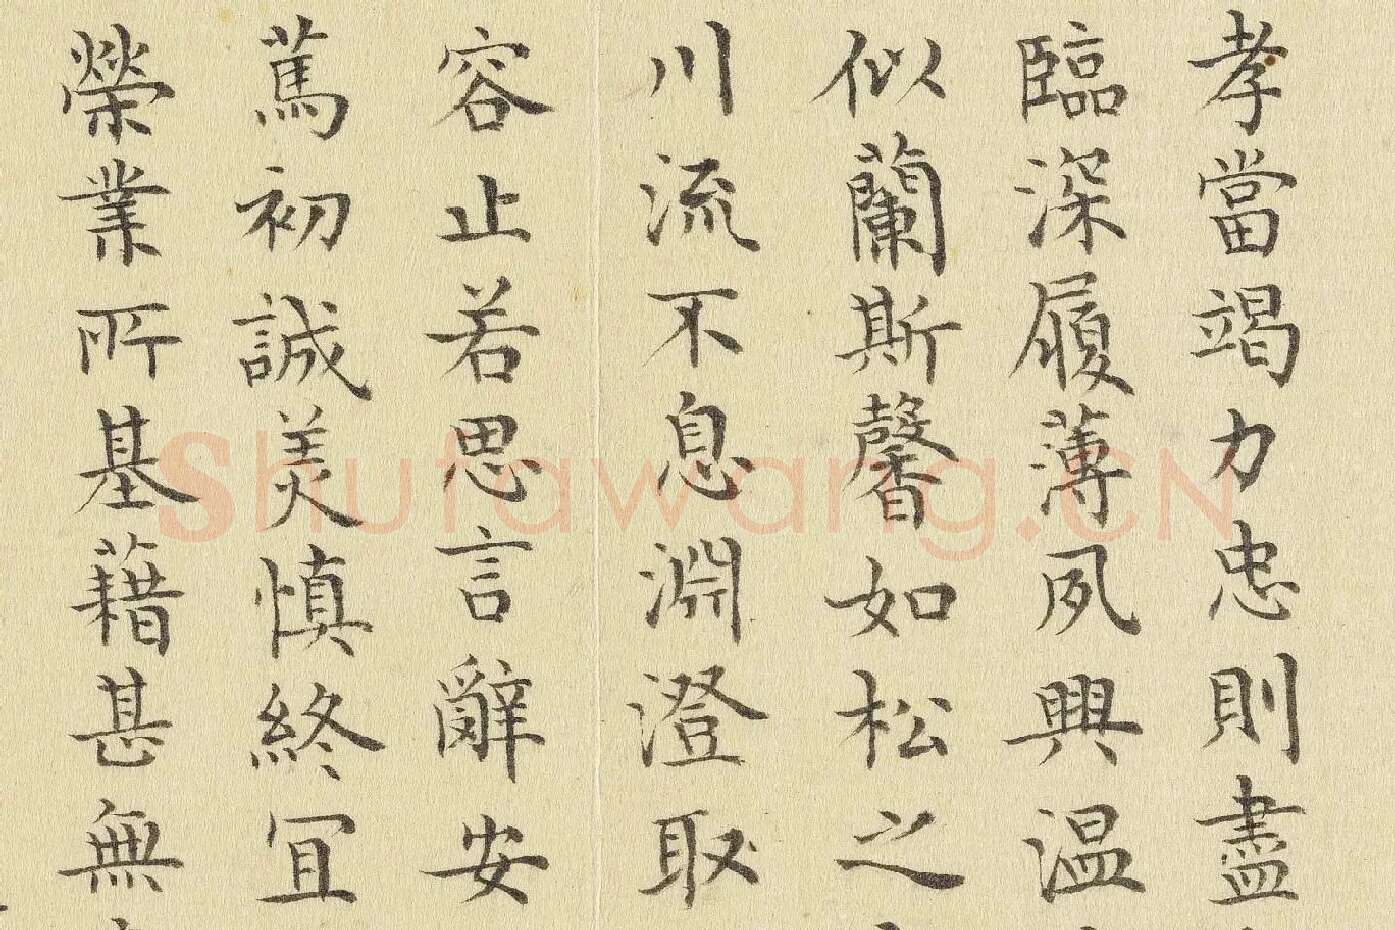 孝當竭力忠則盡
臨深履薄夙興温
似蘭斯馨如松之
川流不息淵澄取
容止若思言辭安
篤初誠美慎終冝
榮業所基藉甚無
Shufawang.CN